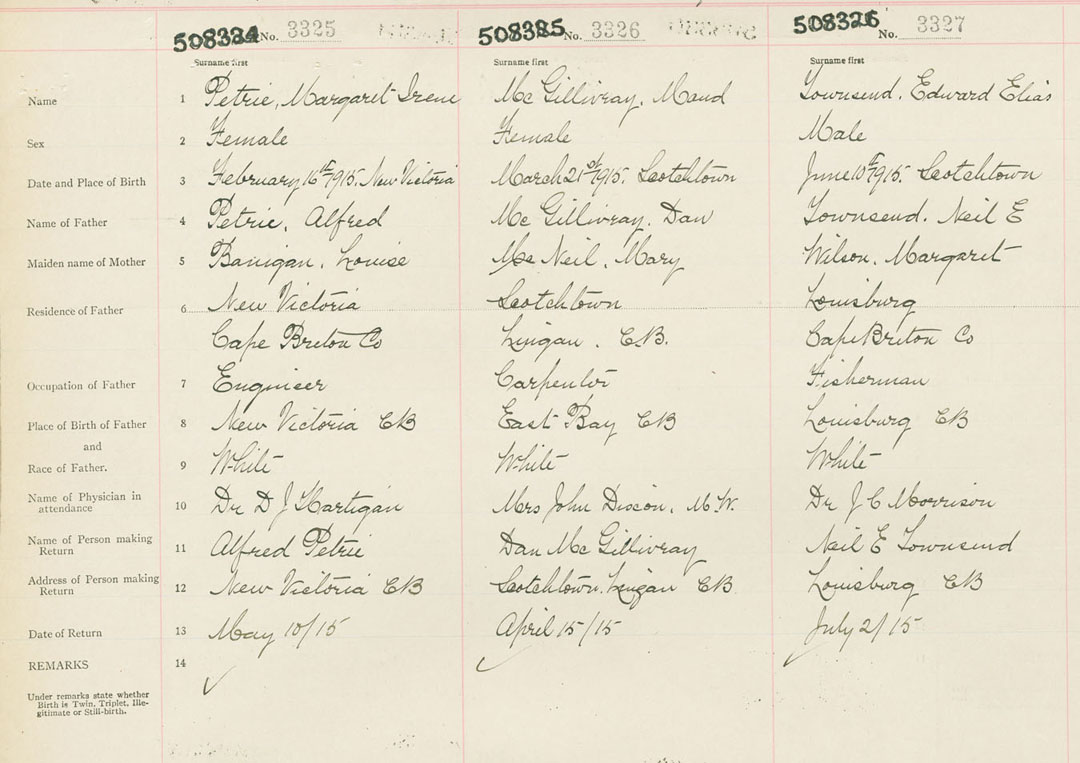 508324 No. 3325 508325 No. 3326 508326 No. 3327
Surname first Surname first Surname first
Name 1 Petrie, Margaret Irene Mc Gillivray, Maud Townsend, Edward Elias
Sex 2 Female Female Male
Date and Place of Birth 3 February 16th 1915. New Victoria March 21st 1915. Scotchtown June 10th 1915. Scotchtown
Name of Father 4 Petrie, Alfred Mc Gillivray, Dan Townsend, Neil E
Maiden name of Mother 5 Banigan, Louise Mc Neil, Mary Wilson, Margaret
Residence of Father 6 New Victoria Scotchtown Louisburg
Cape Breton Co Lingan, C.B. Cape Breton Co
Occupation of Father 7 Engineer Carpentor Fisherman
Place of Birth of Father 8 New Victoria CB East Bay CB Louisburg CB
and
Race of Father. 9 White White White
Name of Physician in attendance 10 Dr D J Hartigan Mrs John Dixon, M.W. Dr J C Morrison
Name of Person making Return 11 Alfred Petrie Dan Mc Gillivray Neil E Townsend
Address of Person making Return 12 New Victoria CB Scotchtown, Lingan CB Louisburg CB
Date of Return 13 May 10/15 April 15/15 July 2/15
REMARKS 14
Under remarks state whether
Birth is Twin, Triplet, Ille-
gitimate or Still-birth.